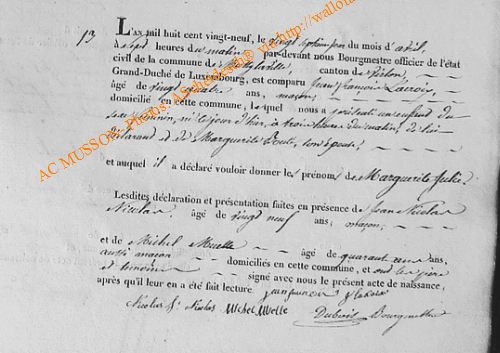 13
L'an mil huit cent vingt-neuf, le vingt septième jour du mois d'avril,
à sept heures du matin par-devant nous Bourgmestre officier de l'état
civil de la commune de canton de Virton,
Grand-Duché de Luxembourg, est comparu Jean François Lavoix,
âgé de vingt quatre ans, maçon,
domicilié en cette commune, lequel nous a présenté un enfant du
sexe féminin, né le jour d'hier, à trois heures du matin, de lui
déclarant et de Marguerite son épouse,
et auquel il a déclaré vouloir donner les prénoms de Marguerite Julie.
Lesdites déclaration et présentation faites en présence de Jean Nicolas
Nicolas âgé de vingt neuf ans, maçon,
et de Michel Muelle âgé de quarant ans,
aussi maçon domiciliés en cette commune, et ont les père
et témoins signé avec nous le présent acte de naissance,
après qu'il leur en a été fait lecture
Nicolas Michel Bourgmestre
AC MUSSON, Photos: http://wallonia